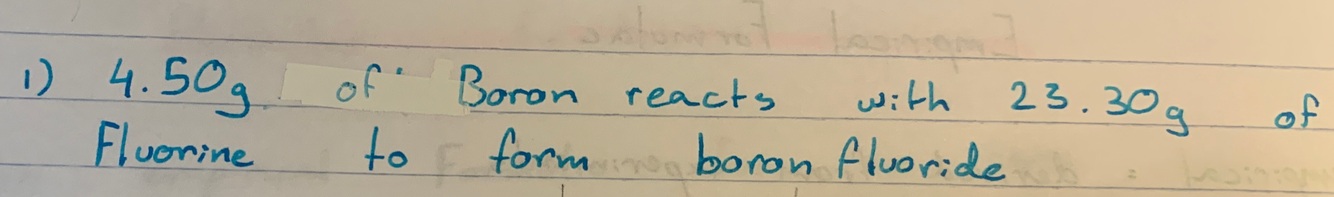 1) 4.50g of Boron reacts with 23.30g of
Fluorine to form boron fluoride